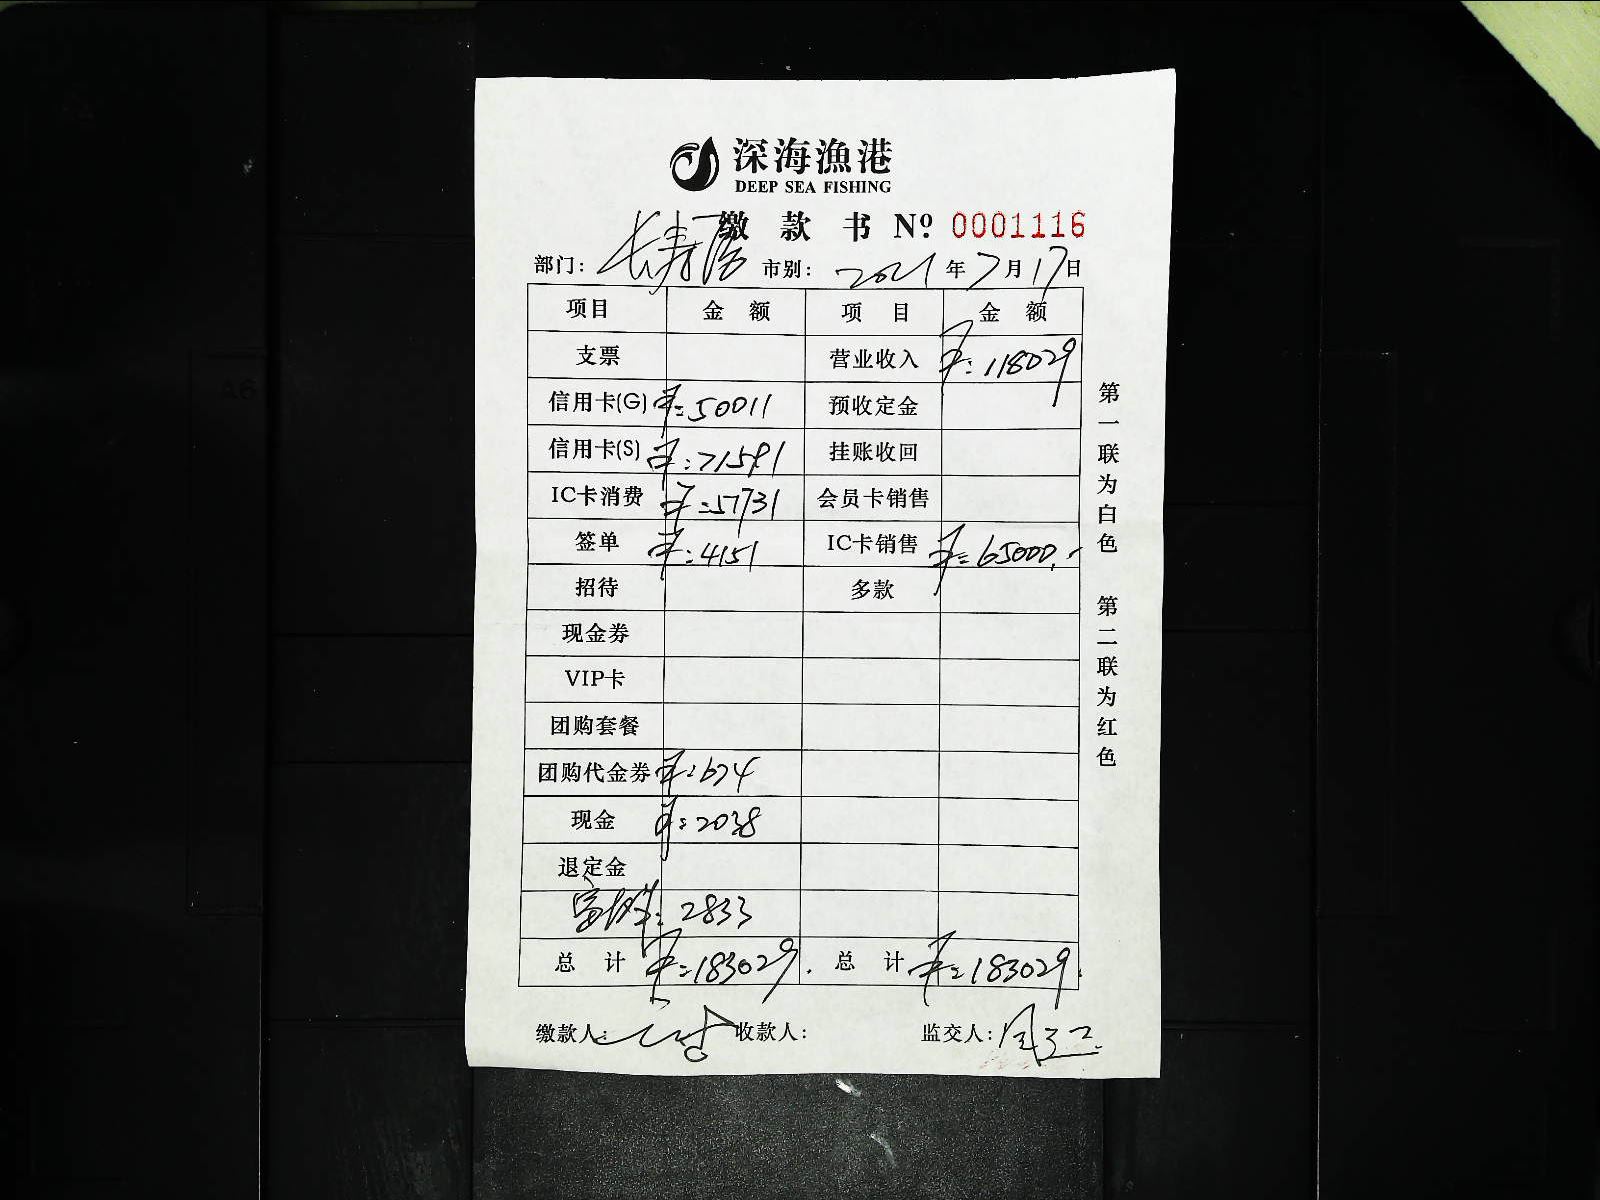 深海漁港
DEEP SEA FISHING
缴款书 Nº 0001116
部门: 长寿店 市别: 2021年7月17日
项目 金额 项目 金额
支票 营业收入 ¥:118029
信用卡(G) ¥:50011 预收定金
信用卡(S) ¥:71591 挂账收回
IC卡消费 ¥:51731 会员卡销售
签单 ¥:4151 IC卡销售 ¥:65000.-
招待 多款
现金券
VIP卡
团购套餐
团购代金券 ¥:674
现金 ¥:2038
退定金
¥:2833
总计 ¥:183029. 总计 ¥:183029.
缴款人: 收款人: 监交人:
第一联为白色 第二联为红色